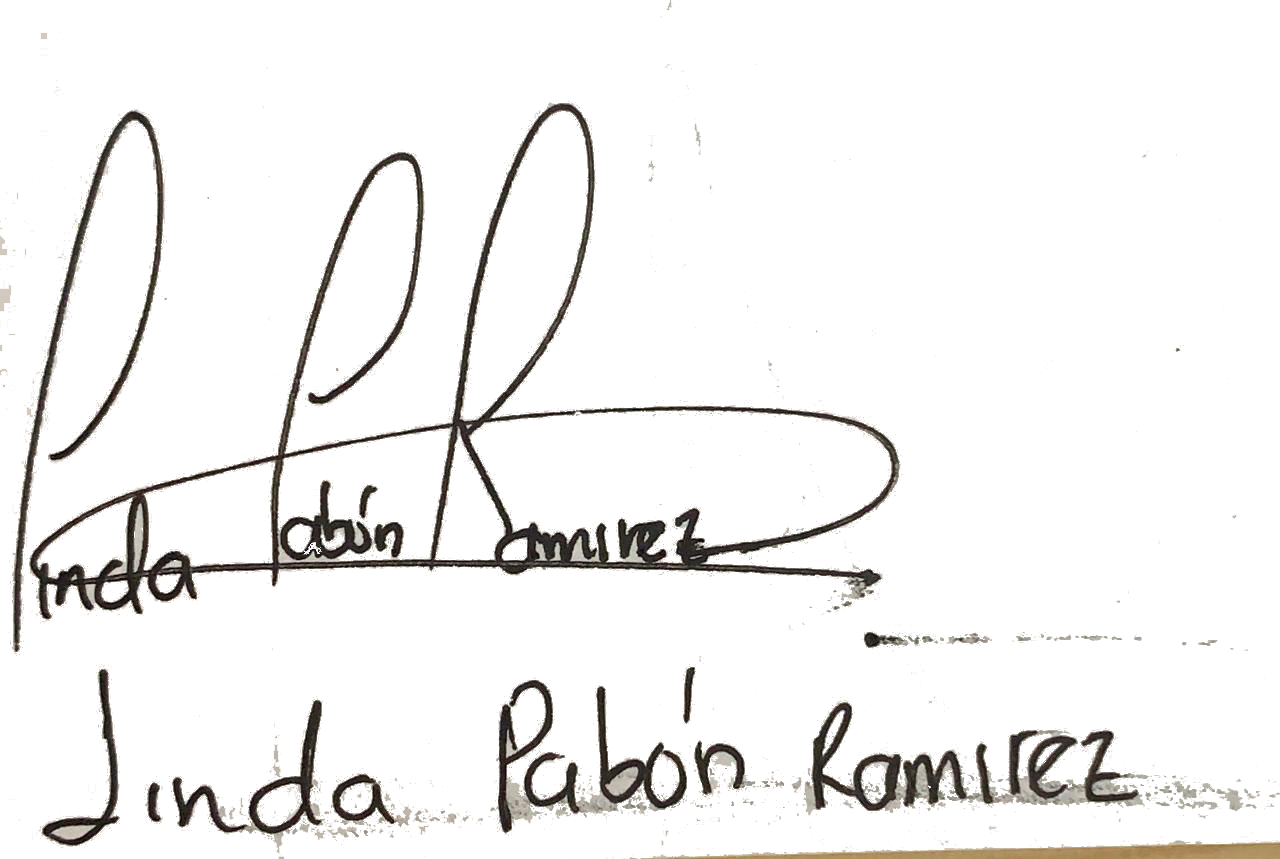 Linda Pabón Ramirez
Linda Pabón Ramirez